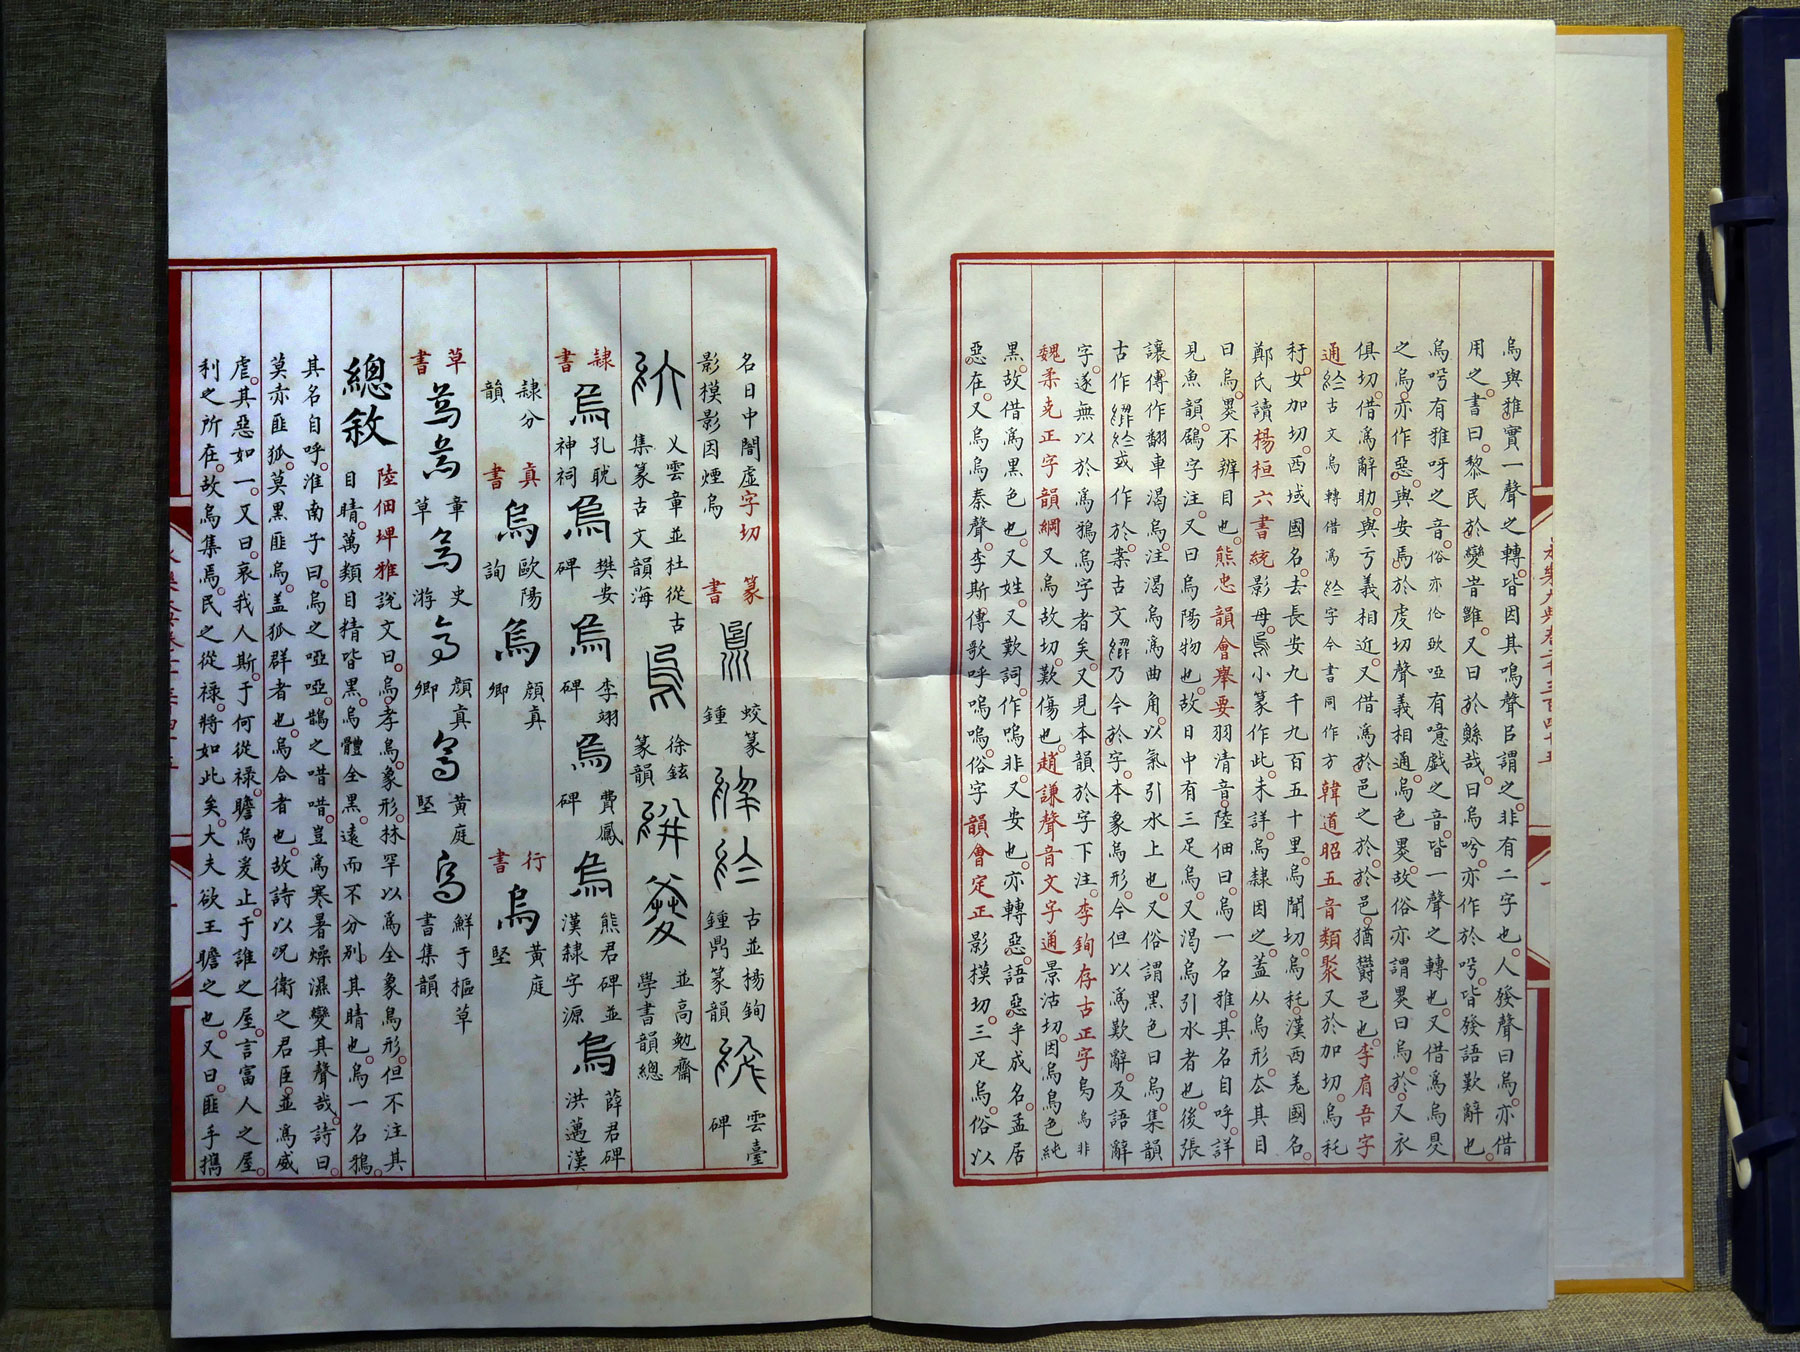 烏與雅實一聲之轉皆因其鳴聲㠯謂之非有二字也人發聲曰烏亦借
用之書曰黎民於變旹雝又曰於繇哉曰烏呼亦作於呺皆發語歎辭也
烏呺有雅呀之音俗亦伦歍啞有噫戯之音皆一聲之轉也又借為烏㬥
之烏亦作惡與安焉於虔切聲義相通烏色㬥故俗亦謂㬥曰烏於又衣
俱切借為辭助與亏義相近又借為於邑之於於邑猶欝邑也李肩吾字
通古文烏轉借為字今書同作方韓道昭五音類聚又於加切烏秅
秅女加切西域國名去長安九千九百五十里烏閒切烏秏漢西羗國名
鄭氏讀楊桓六書統影母小篆作此未詳烏隸因之蓋从烏形夲其目
曰烏㬥不辨目也熊忠韻會舉要羽清音陸佃曰烏一名雅其名自呼詳
見魚韻鷗字注又曰烏陽物也故日中有三足烏又渴烏引水者也後張
讓傳作翻車渴烏注渴烏為曲角以氣引水上也又俗謂黑色曰烏集韻
古作或作於案古文乃今於字本象烏形今但以為歎辭及語辭
字遂無以於為鴉烏字者矣又見本韻於字下注李銁存古正字烏烏非
魏柔克正字韻綱又烏故切歎傷也趙謙聲音文字通景沽切因烏烏色純
黑故借為黑色也又姓又歎詞作嗚非又安也亦轉惡語惡乎成名孟居
惡在又烏烏秦聲李斯傳歌呼嗚嗚俗字韻會定正影模切三足烏俗以
永樂大典卷二千三百四十五
名日中闇虛字切
影模影因煙烏
篆書
蛟篆鍾
古並楊銁鍾鼎篆韻
雲臺碑
乂雲章並杜從古集篆古文韻海
烏
徐鉉篆韻
並高勉齋學書韻總
隸書
烏 孔耽神祠
烏 樊安碑
烏 李翊碑
烏 費鳳碑
烏 熊君碑並漢隸字源
烏 薛君碑洪邁漢
隸分韻
真書
烏 歐陽詢
烏 顏真卿
行書
烏 黃庭堅
草書
烏烏 章草
烏 史游
烏 顏真卿
烏 黃庭堅
烏 鮮于樞草書集韻
總敘
陸佃埤雅說文曰烏孝烏象形林罕以為全象鳥形但不注其
目睛萬類目精皆黑烏體全黑遠而不分別其睛也烏一名鴉
其名自呼淮南子曰烏之啞啞鵲之唶唶豈為寒暑燥濕變其聲哉詩曰
莫赤匪狐莫黑匪烏蓋狐群者也烏合者也故詩以況衛之君臣並為威
虐其惡如一又曰哀我人斯于何從祿瞻烏爰止于誰之屋言富人之屋
利之所在故烏集焉民之從祿將如此矣大夫欲王瞻之也又曰匪手攜